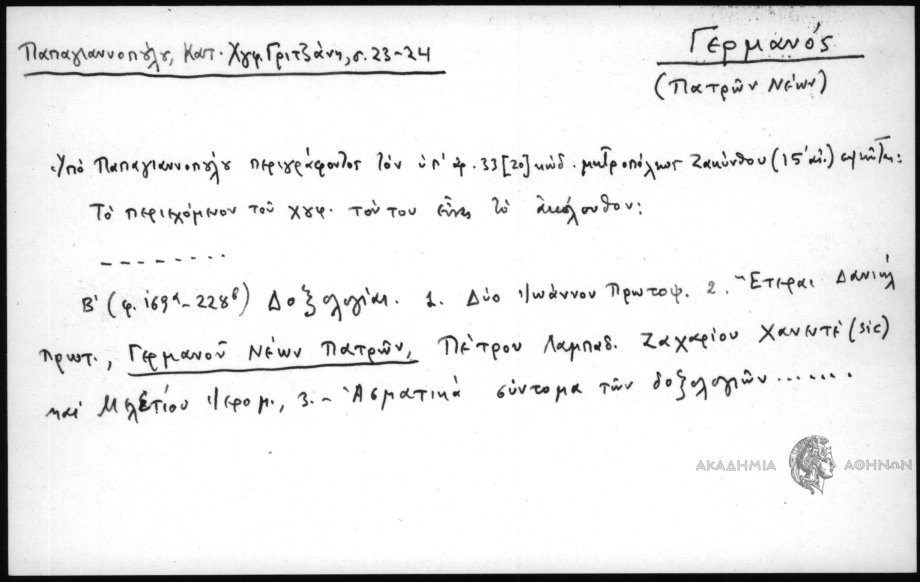 Παπαγιαννοπούλου, Κατ. Χγφ. Γριτζάνη, σ. 23-24
Γερμανός
(Πατρῶν Νέων)
Ὑπό Παπαγιαννοπούλου περιγράφοντος τόν ὑπ' ἀρ. 33[20] κώδ. μητροπόλεως Ζακύνθου (15' αἰ.)
Τό περιεχόμενον τοῦ χγφ. τούτου εἶναι τό ἀκόλουθον:
- - - - - - - -
Β' (φ. 169α - 228β) Δοξολογίαι. 1. Δύο Ἰωάννου Πρωτοψ. 2. Ἕτεραι Δανιήλ
πρωτ., Γερμανοῦ Νέων Πατρῶν, Πέτρου Λαμπαδ. Ζαχαρίου Χανεντέ (sic)
καί Μελετίου ἱερομ., 3.- Ἀσματικά σύντομα τῶν δοξολογιῶν .......
ΑΚΑΔΗΜΙΑ ΑΘΗΝΩΝ